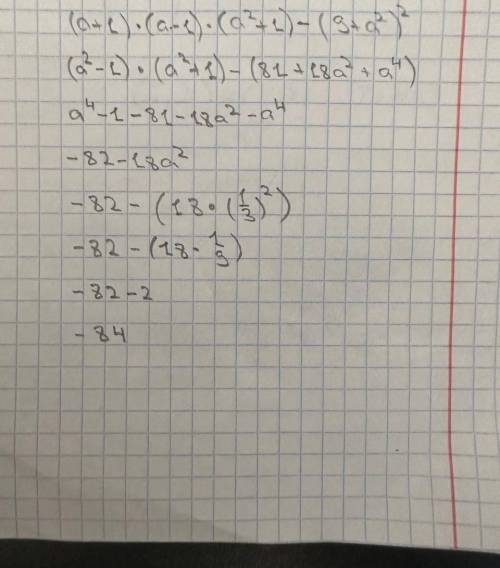 (a+1)·(a-1)·(a²+1)-(9+a²)²
(a²-1)·(a²+1)-(81+18a²+a⁴)
a⁴-1-81-18a²-a⁴
-82-18a²
-82-(18·(1/3)²)
-82-(18·1/9)
-82-2
-84